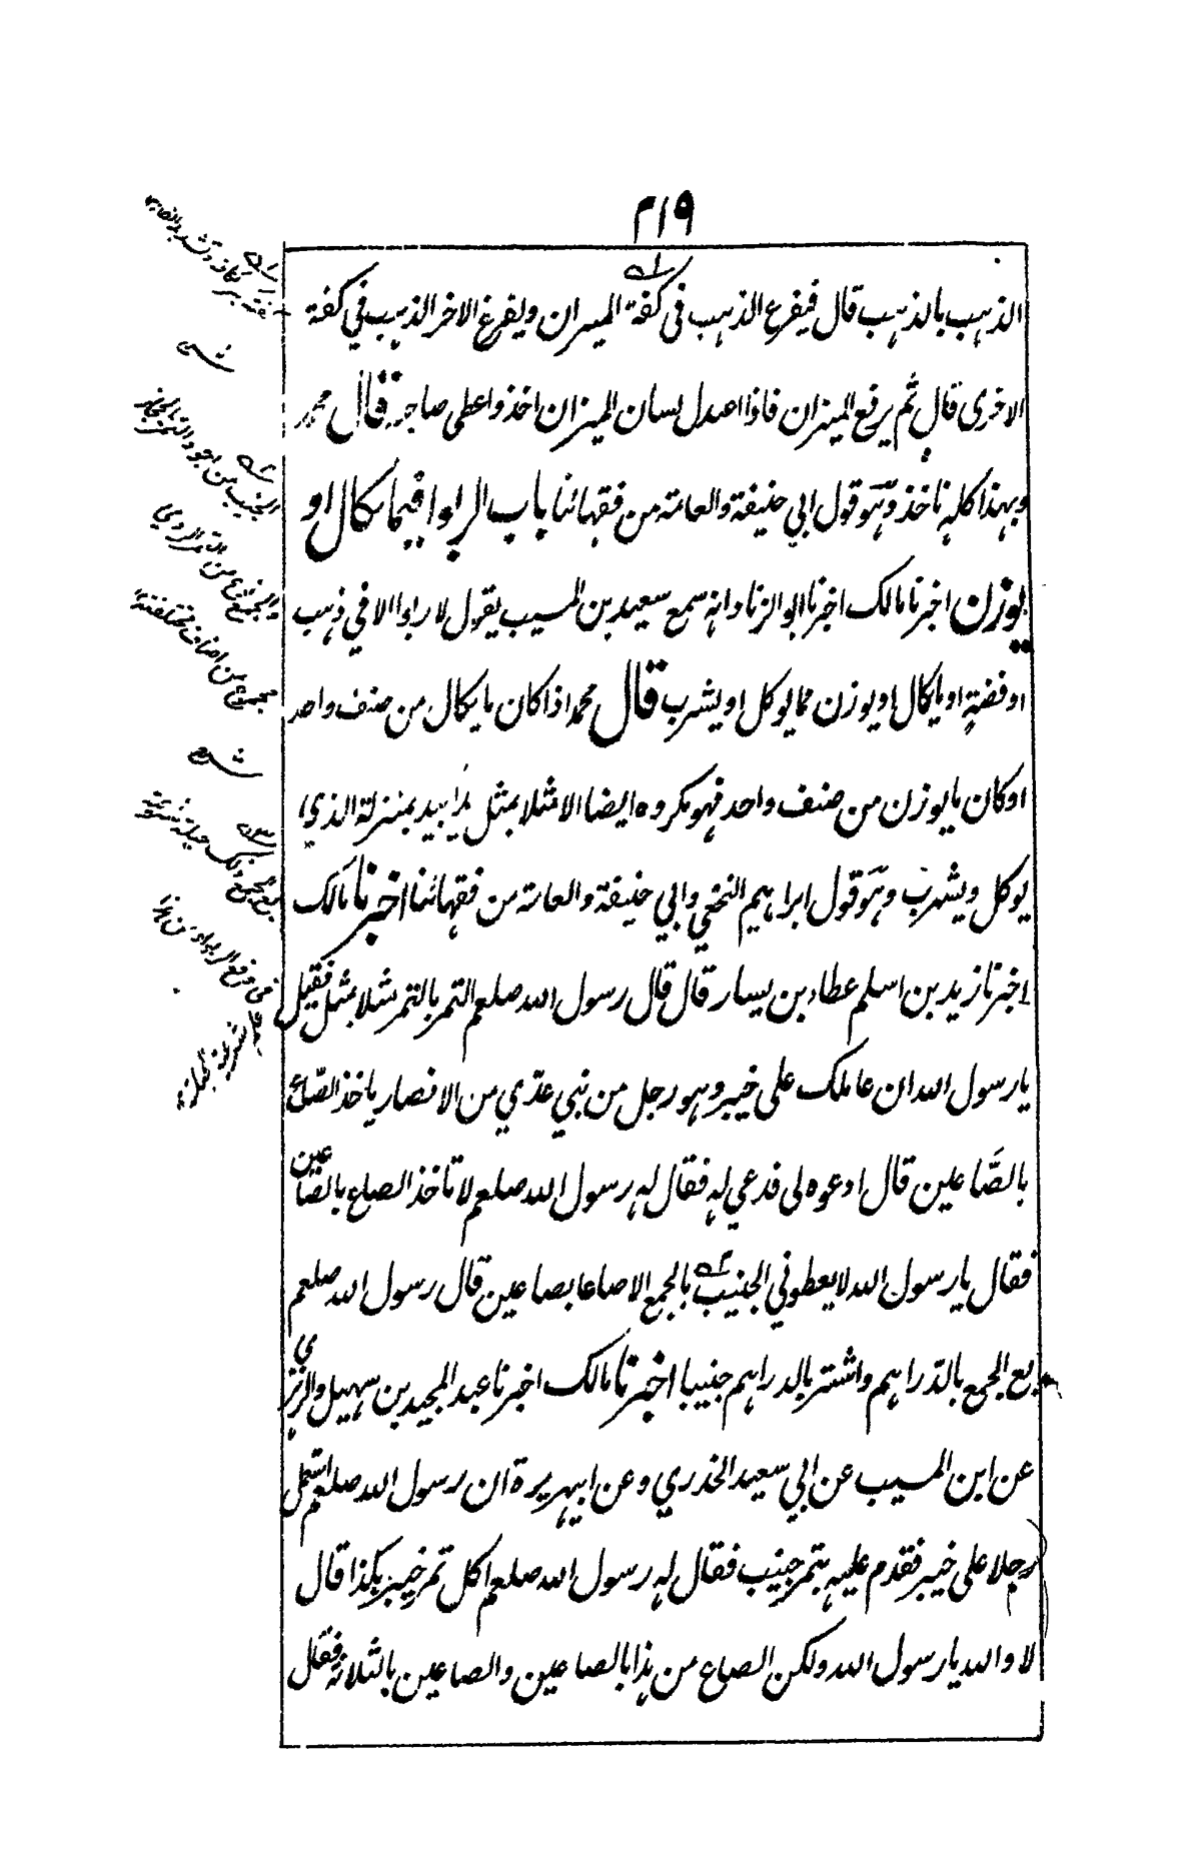 ۳۱۹
الذہب بالذہب قال فیفرع الذہب فی کفۃ المیزان ویفرغ الاخر الذہب في کفۃ
الاخری قال ثم یرفع المیزان فاذا اعتدل لسان المیزان اخذ واعطی صاحبہ قال محمد
وبہذا کلہ ناخذ وہو قول ابي حنیفۃ والعامۃ من فقہائنا باب الربوا فیما یکال او
یوزن اخبرنا مالک اخبرنا ابو الزناد انہ سمع سعید بن المسیب یقول لا ربوا الا في ذہب
او فضۃ او ما یکال او یوزن مما یوکل او یشرب قال محمد اذا کان ما یکال من صنف واحد
او کان ما یوزن من صنف واحد فہو مکروہ ایضا الا مثلا بمثل یدا بید بمنزلۃ الذي
یوکل ویشرب وہو قول ابراہیم النخعي وابي حنیفۃ والعامۃ من فقہائنا اخبرنا مالک
اخبرنا زید بن اسلم عطاء بن یسار قال قال رسول اللہ صلعم التمر بالتمر مثلا بمثل فقیل
یا رسول اللہ ان عاملک علی خیبر وہو رجل من بني عدّي من الانصار یاخذ الصّاع
بالصَّاعین قال ادعوہ لی فدعي لہ فقال لہ رسول اللہ صلعم لا تاخذ الصاع بالصاعین
فقال یا رسول اللہ لا یعطوني الجنیب بالجمع الا صاعا بصاعین قال رسول اللہ صلعم
بع الجمع بالدّراہم واشتر بالدراہم جنیبا اخبرنا مالک اخبرنا عبد المجید بن سہیل والزہري
عن ابن المسیب عن ابي سعید الخدري وعن ابیہریرۃ ان رسول اللہ صلعم استعمل
رجلا علی خیبر فقدم علیہ بتمر جنیب فقال لہ رسول اللہ صلعم اکل تمر خیبر ہکذا قال
لا واللہ یا رسول اللہ ولکن الصاع من ہذا بالصاعین والصاعین بالثلاثۃ فقال